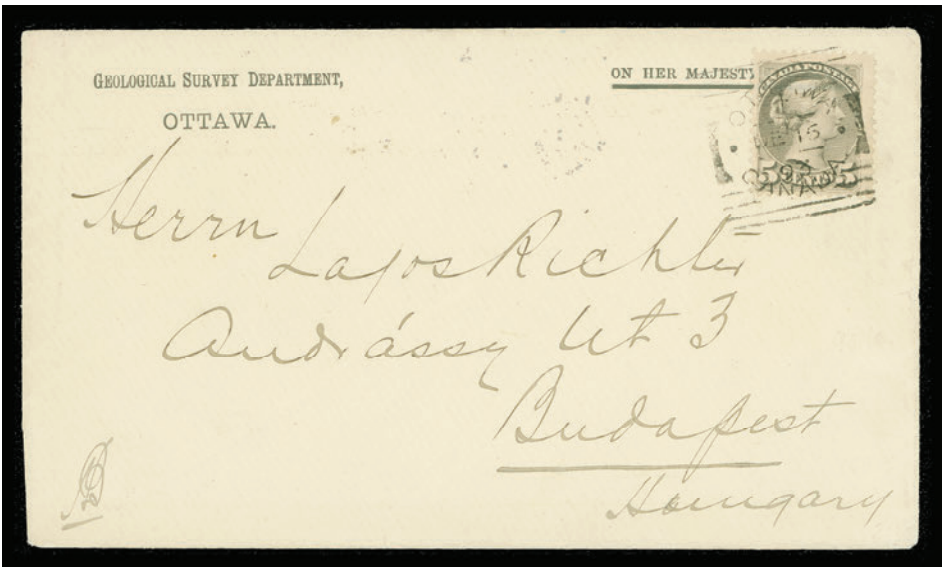 GEOLOGICAL SURVEY DEPARTMENT,
OTTAWA.
ON HER MAJEST
CANADA
Herrn
Lajos Richter
Andrássy Ut 3
Budapest
Hungary